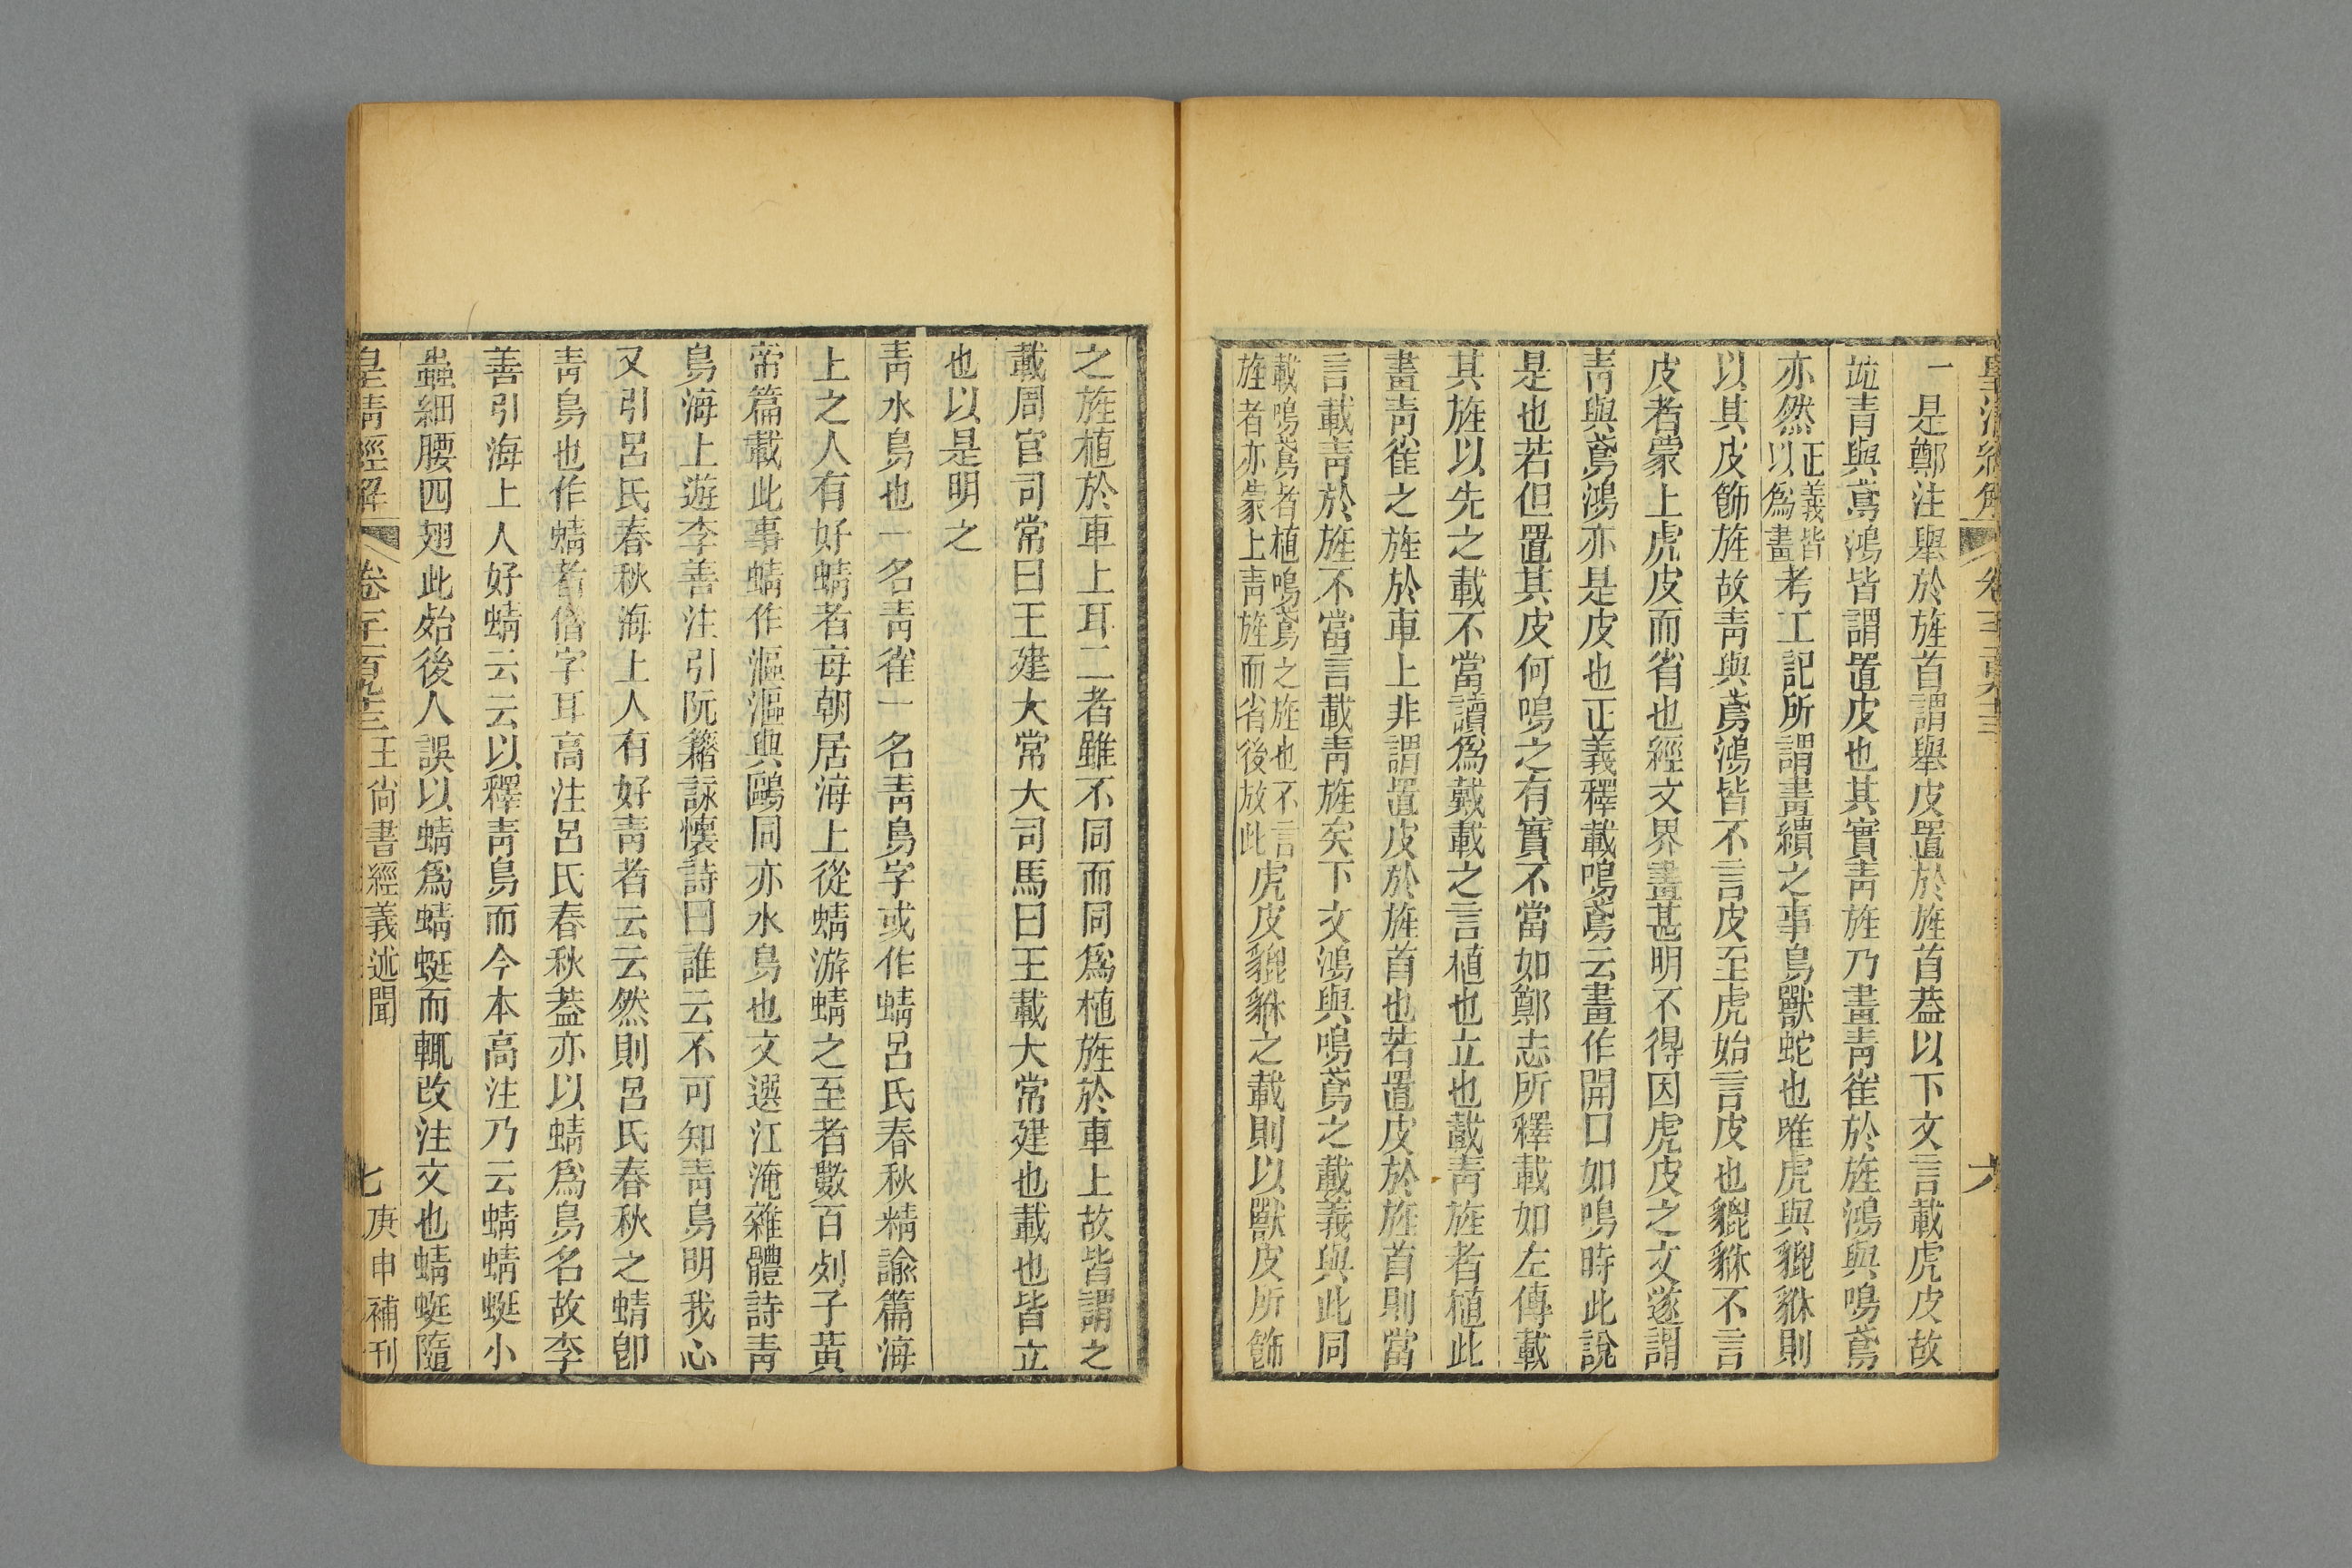 一是鄭注舉於旌首謂舉皮置於旌首葢以下文言載虎皮故
䟽青與鳶鴻皆謂置皮也其實青旌乃畫青雀於旌鴻與鳴鳶
亦然正義皆以爲畫考工記所謂畫繢之事鳥獸蛇也唯虎與貔貅則
以其皮飾旌故青與鳶鴻皆不言皮至虎始言皮也貔貅不言
皮者蒙上虎皮而省也經文界畫甚明不得因虎皮之文遂謂
青與鳶鴻亦是皮也正義釋載鳴鳶云畫作開口如鳴時此說
是也若但置其皮何鳴之有實不當如鄭志所釋載如左傳載
其旌以先之載不當讀爲戴載之言植也立也載青旌者植此
畫青雀之旌於車上非謂置皮於旌首也若置皮於旌首則當
言載青於旌不當言載青旌矣下文鴻與鳴鳶之載義與此同
載鳴鳶者植鳴鳶之旌也不言旌者亦蒙上青旌而省後放此虎皮貔貅之載則以獸皮所飾
之旌植於車上耳二者雖不同而同爲植旌於車上故皆謂之
載周官司常曰王建大常大司馬曰王載大常建也載也皆立
也以是明之
青水鳥也一名青雀一名青鳥字或作蜻呂氏春秋精諭篇海
上之人有好蜻者每朝居海上從蜻游蜻之至者數百列子黃
帝篇載此事蜻作漚漚與鷗同亦水鳥也文選江淹雜體詩青
鳥海上遊李善注引阮籍詠懷詩曰誰云不可知青鳥明我心
又引呂氏春秋海上人有好青者云云然則呂氏春秋之蜻卽
青鳥也作蜻者借字耳高注呂氏春秋葢亦以蜻爲鳥名故李
善引海上人好蜻云云以釋青鳥而今本高注乃云蜻蜻蜓小
蟲細腰四翅此殆後人誤以蜻爲蜻蜓而輒改注文也蜻蜓隨
皇清經解 卷 王尚書經義述聞 七 庚申補刊